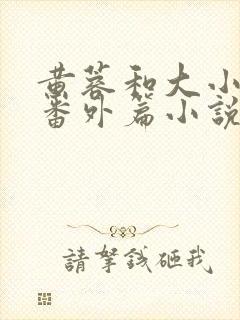 黄蓉和大小
番外篇小說
請拏錢砸我